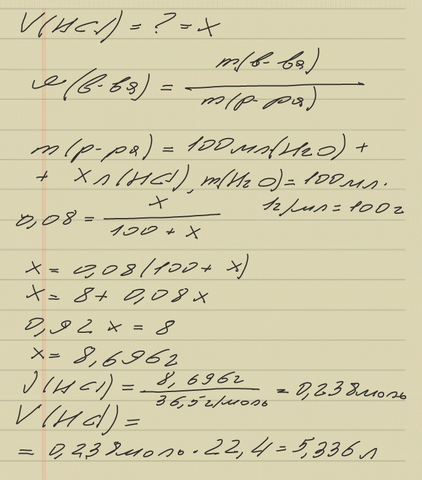 V(HCl) = ? = x
ω(в-ва) = m(в-ва) / m(р-ра)
m(р-ра) = 100мл(H2O) +
+ x л(HCl), m(H2O) = 100мл ·
1г/мл = 100г
0,08 = x / 100 + x
x = 0,08(100 + x)
x = 8 + 0,08x
0,92x = 8
x = 8,696г
ν(HCl) = 8,696г / 36,5г/моль = 0,238моль
V(HCl) =
= 0,238моль · 22,4 = 5,336л